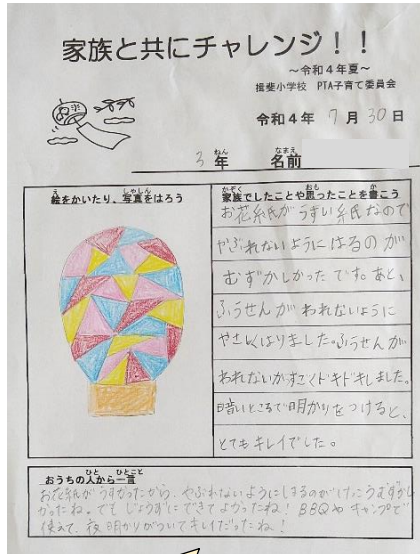 家族と共にチャレンジ！！
～令和４年夏～
揖斐小学校　PTA子育て委員会
令和４年 7 月 30 日
3 年　名前
ねん　なまえ
絵をかいたり、写真をはろう
え　しゃしん
家族でしたことや思ったことを書こう
かぞく　おも　か
お花紙がうすい紙なので
やぶれないようにはるのが
むずかしかったです。あと、
ふうせんがわれないように
やさしくはりました。ふうせんが
われないかすごくドキドキしました。
暗いところで明かりをつけると、
とてもキレイでした。
おうちの人から一言
ひと　ひとこと
お花紙がうすかったから、やぶれないようにはるのがけっこうむずかし
かったね。でもじょうずにできてよかったね！BBQやキャンプで
使えて、夜明かりがついてキレイだったね！